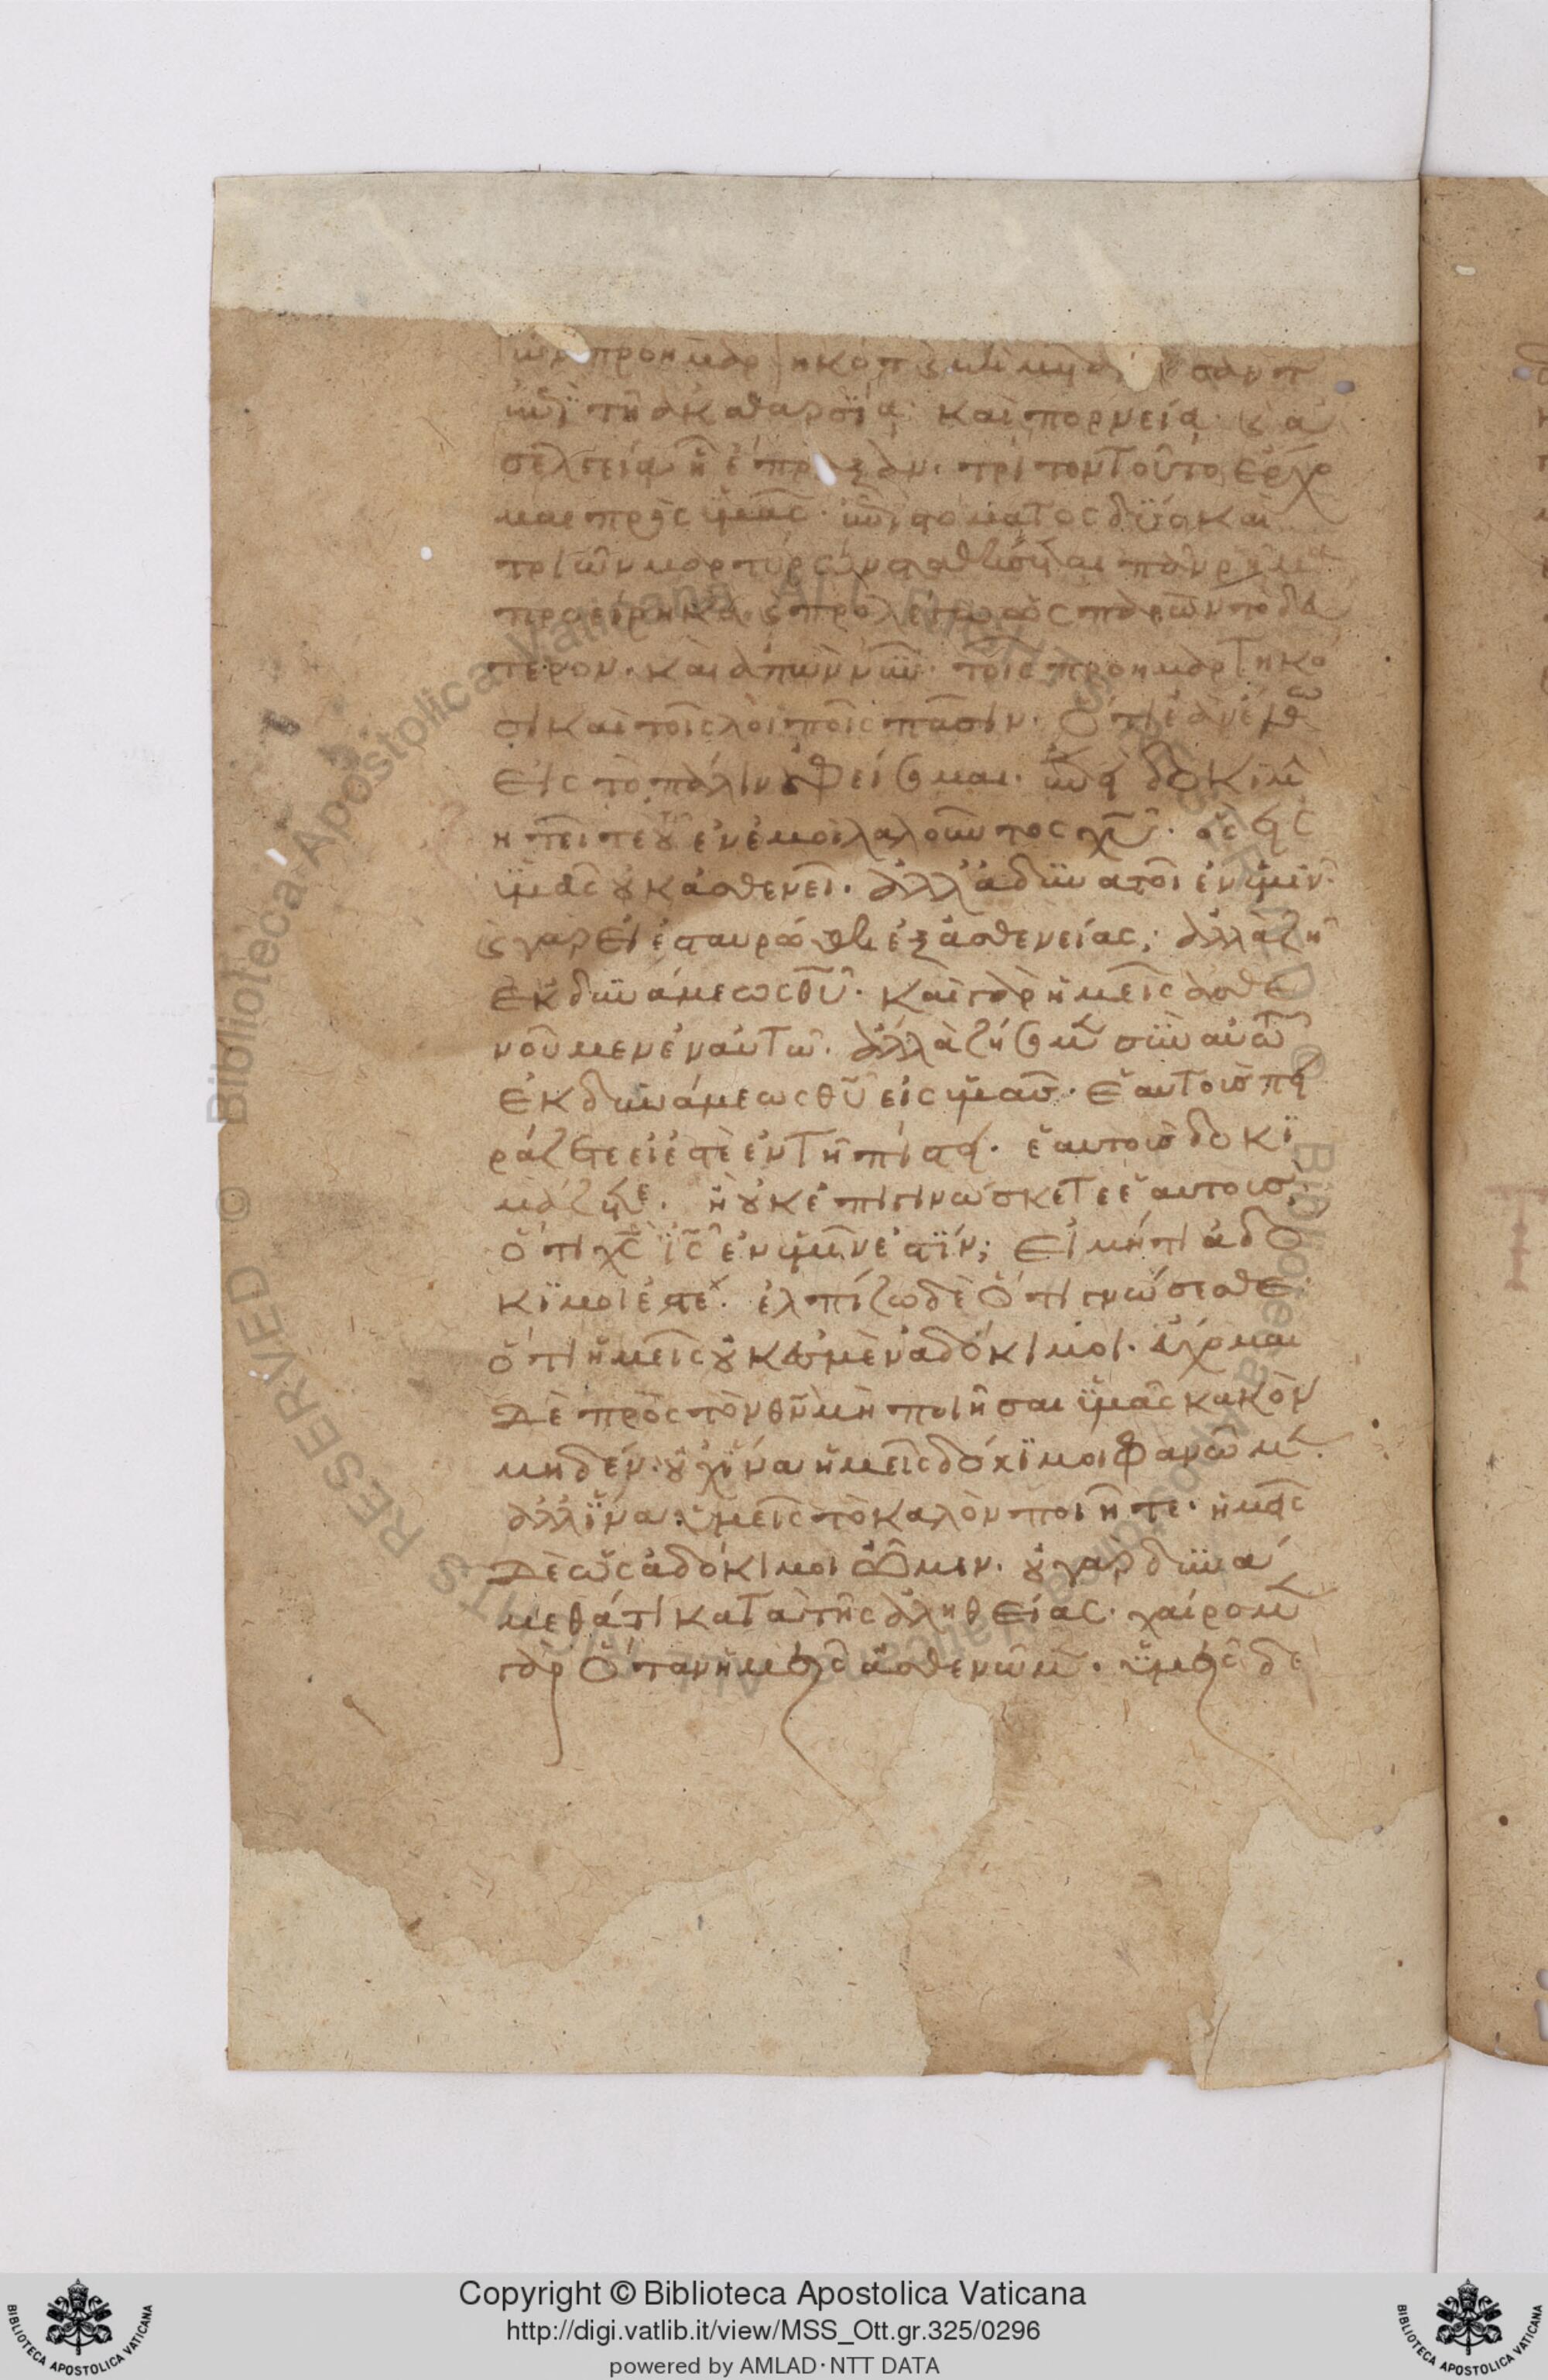 τῶν προημαρτηκότ ϗ μὴ μετανοησάντ
ἐπὶ τῆ ἀκαθαρσία· καὶ πορνεία· ϗ ἀ
σελγεία ἧ ἔπραξαν. τρίτον τοῦτο ἔρχο
μαι πρὸς ὑμᾶς· ἐπὶ στόματος δύο καὶ
τριῶν μαρτύρων σταθήσεται πᾶν ρῆμα.
προείρηκα. ϗ προλέγω ὡς παρὼν τὸ δεύ
τερον. καὶ ἀπὼν νῦν· τοῖς προημαρτηκό
σι καὶ τοῖς λοιποῖς πᾶσιν. ὅτι ἐὰν ἔλθω
εἰς τὸ πάλιν οὐ φείσομαι. ἐπεὶ δοκιμὴ
ζητεῖτε τοῦ ἐν ἐμοὶ λαλοῦντος χῦ. ὃς εἰς
ὑμᾶς οὐκ ἀσθενεῖ. ἀλλὰ δυνατεῖ ἐν ὑμῖν.
ϗ γὰρ εἰ ἐσταυρώθη ἐξ ἀσθενείας· ἀλλὰ ζῆ
ἐκ δυνάμεως θῦ. καὶ γὰρ ἡμεῖς ἀσθε
νοῦμεν ἐν αὐτῶ. ἀλλὰ ζησόμεθα σὺν αὐτῶ
ἐκ δυνάμεως θῦ εἰς ὑμᾶς. ἑαυτοὺς πει
ράζετε εἰ ἐστὲ ἐν τῆ πίστει. ἑαυτοὺς δοκι
μάζετε. ἢ οὐκ ἐπιγινώσκετε ἑαυτοὺς,
ὅτι χς ις ἐν ὑμῖν ἐστίν; εἰ μή τι ἀδό
κιμοί ἐστε. ἐλπίζω δὲ ὅτι γνώσεσθε·
ὅτι ἡμεῖς οὐκ ἐσμὲν ἀδόκιμοι. εὔχομαι
δὲ πρὸς τὸν θν μὴ ποιῆσαι ὑμᾶς κακὸν
μηδέν. οὐχ ἵνα ἡμεῖς δόκιμοι φανῶμεν.
ἀλλ ἵνα ὑμεῖς τὸ καλὸν ποιῆτε. ἡμεῖς
δὲ ὡς ἀδόκιμοι ὦμεν. οὐ γὰρ δυνά
μεθά τι κατὰ τῆς ἀληθείας. χαίρομεν
γὰρ ὅταν ἡμεῖς ἀσθενῶμεν. ὑμεῖς δὲ
Copyright © Biblioteca Apostolica Vaticana
http://digi.vatlib.it/view/MSS_Ott.gr.325/0296
powered by AMLAD·NTT DATA